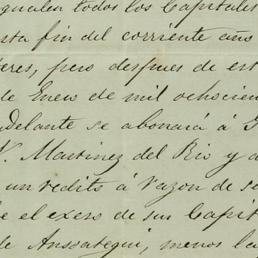 igualen todos los Capitales
sta fin del corriente año
eres, pero despues de est
de Enero de mil ochocien
delante se abonará á
V. Martinez del Rio y a
un redito á razon de se
e el exeso de sus Capit
de Anssategui, menos la